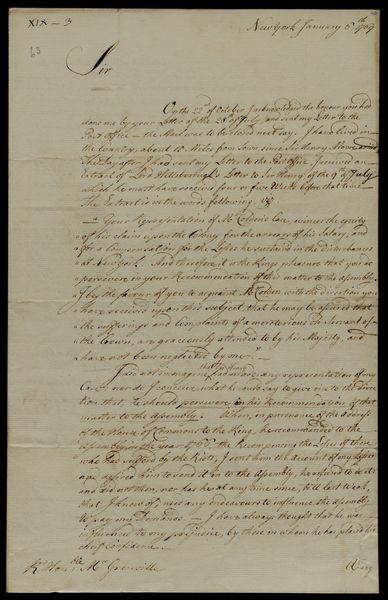 XIX — 3
New York January 6th 1769
63
Sir
On the 22d of October I acknowledged the honour you had
done me by your Letter of the 28th of July and sent my Letter to the
Post office — the Mail was to be closed next day. I have lived in
the Country, about 15 Miles from Town, since Sir Henry Moore arrived
The day after I had sent my Letter to the Post office, I received an
Extract of Lord Hillsborough's Letter to Sir Henry of the 9th of July
which he must have received four or five Weeks before that time
The Extract is in the words following, viz
— "Your Representation of Mr Colden's Case, evinces the equity
"of his claim upon the Colony for the arrears of his Salary, and
"for a compensation for the Losses he sustained in the disturbances
"at New York. And therefore it is the Kings pleasure that you do
"persevere in your Recommendation of this matter to the assembly.
"I beg the favour of you to acquaint Mr Colden with the direction you
"have received upon this subject, that he may be assured that
"the sufferings and complaints of a meritorious Servant of
"the Crown, are graciously attended to by his Majesty, and
"have not been neglected by me. —
I did not imagine that Sir Henry had made any representation of my
Case, nor do I conceive what he could say to give rise to the direc
tion that, he should persevere in his Recommendation of that
matter to the assembly. When, in pursuance of the address
of the House of Commons to the King, he recommended to the
assembly in the year 1766, the recompensing the Losses of those
who had suffered by the Riots, I sent him the account of my Losses
and desired him to send it in to the Assembly, he refused to do it:
and did not then, nor has he at any time since, till last Week,
that I know of, used any endeavours to influence the assembly
to pay my Demands. — I have always thought that he was
influenced to my prejudice, by those in whom he has placed his
chief confidence.
Rt Honble Mr Grenville